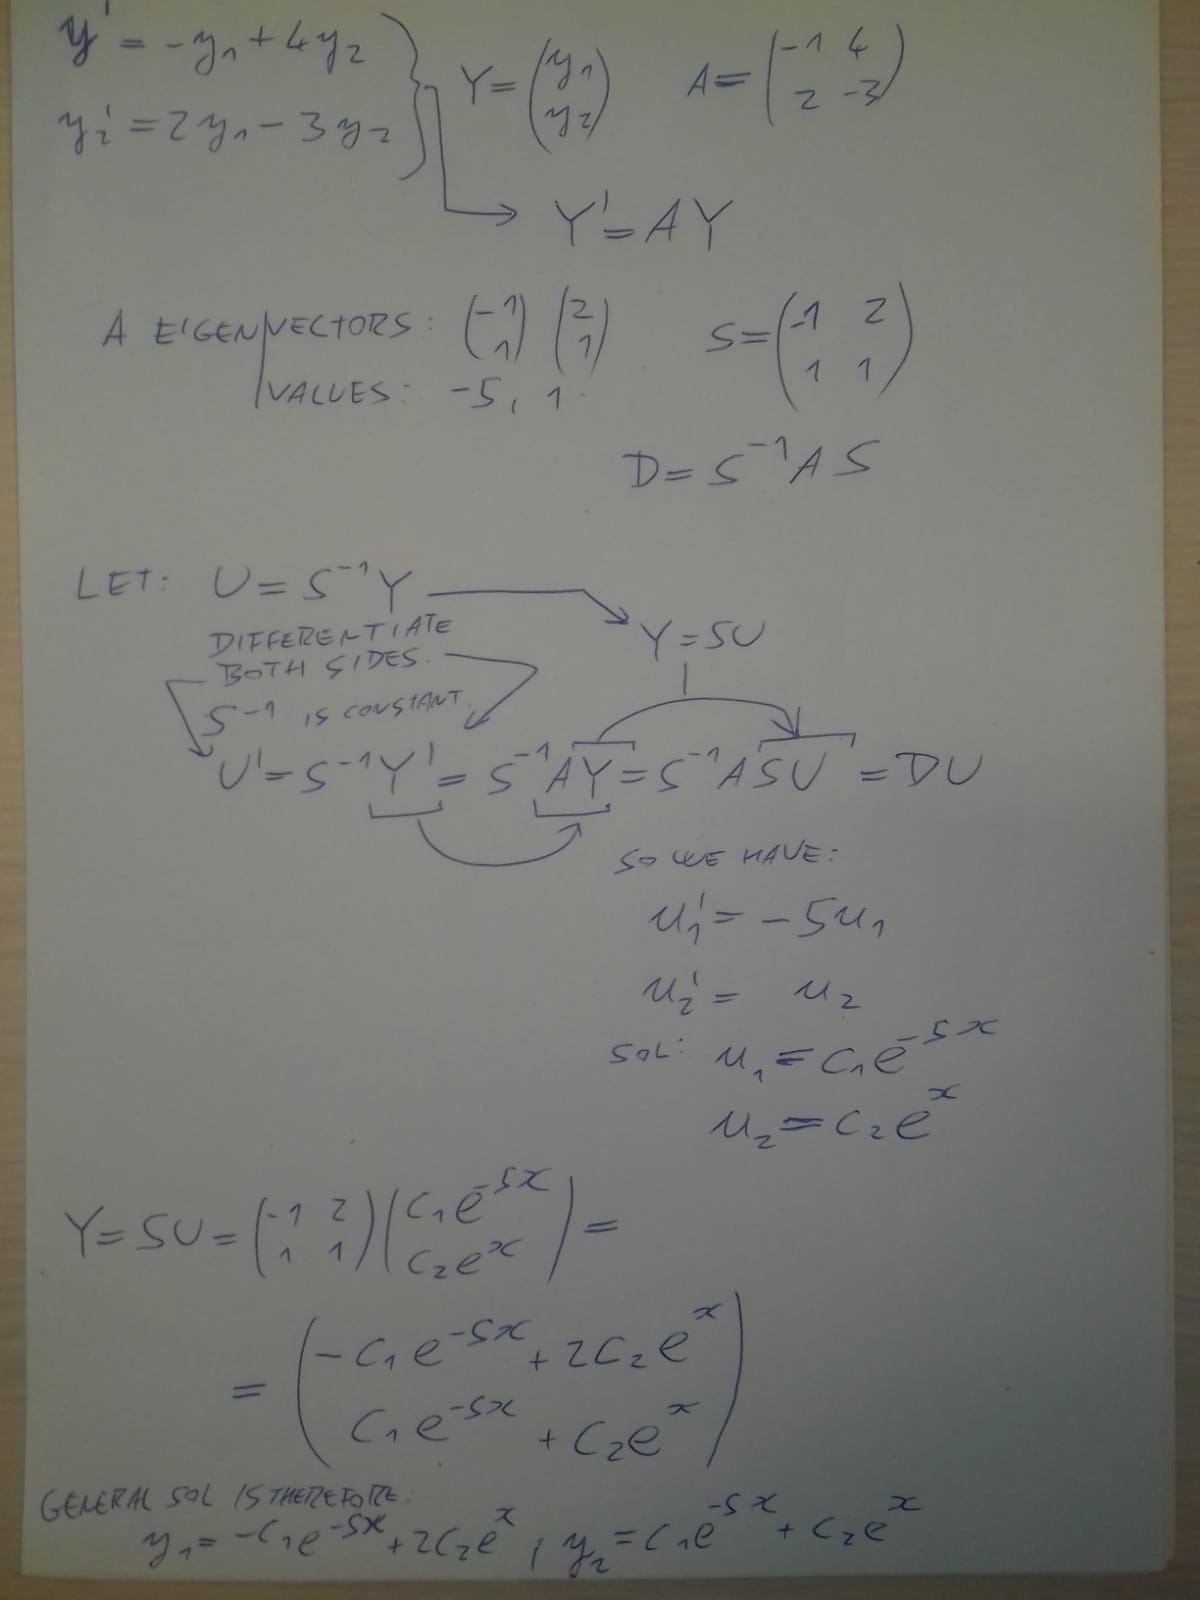 y' = -y₁ + 4y₂
y₂' = 2y₁ - 3y₂
Y = (y₁ y₂)
A = (-1 4
2 -3)
Y' = AY
A EIGENVECTORS: (-1 1) (2 1)
VALUES: -5, 1
S = (-1 2
1 1)
D = S⁻¹AS
LET: U = S⁻¹Y
Y = SU
DIFFERENTIATE
BOTH SIDES.
S⁻¹ IS CONSTANT.
U' = S⁻¹Y' = S⁻¹AY = S⁻¹ASU = DU
SO WE HAVE:
u₁' = -5u₁
u₂' = u₂
SOL: u₁ = c₁e⁻⁵ˣ
u₂ = c₂eˣ
Y = SU = (-1 2
1 1) (c₁e⁻⁵ˣ
c₂eˣ) =
= (-c₁e⁻⁵ˣ + 2c₂eˣ
c₁e⁻⁵ˣ + c₂eˣ)
GENERAL SOL IS THEREFORE:
y₁ = -c₁e⁻⁵ˣ + 2c₂eˣ ; y₂ = c₁e⁻⁵ˣ + c₂eˣ